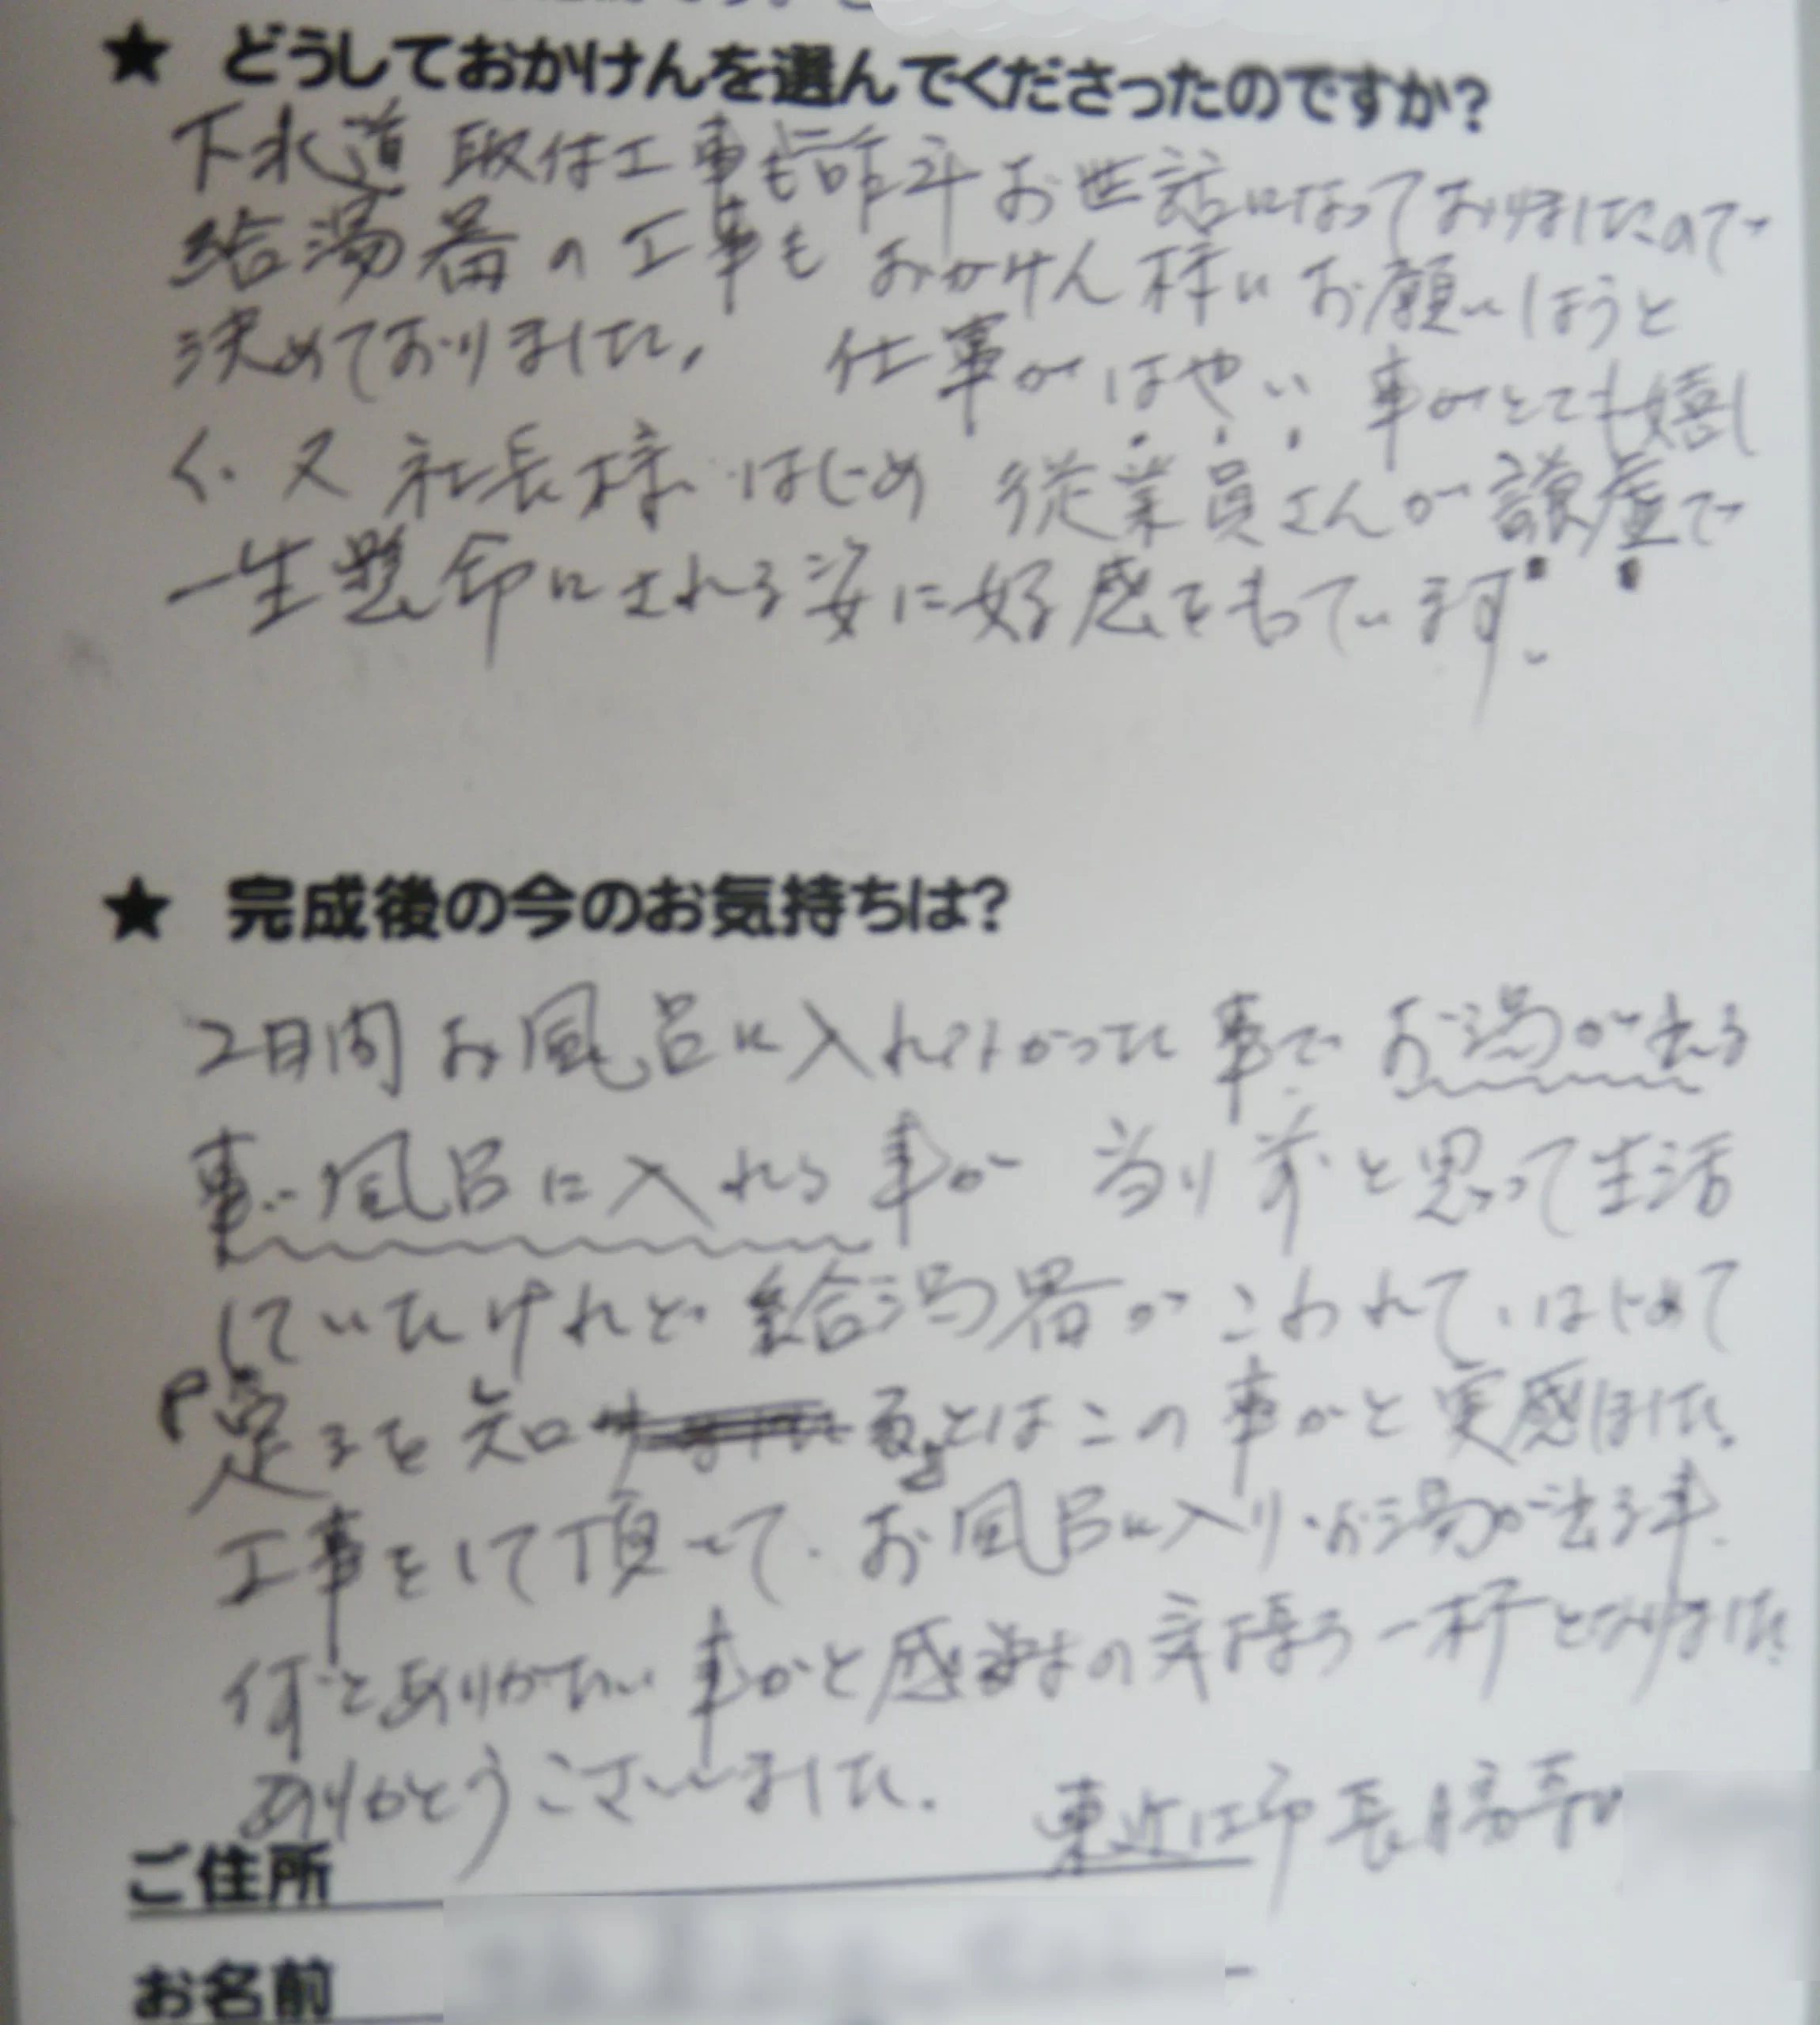 ★ どうしておかけんを選んでくださったのですか?
下水道取付工事も昨年お世話になっておりましたので
給湯器の工事もおかけん様にお願いしようと
決めておりました。 仕事がはやい事がとても嬉し
く、又社長様はじめ 従業員さんが謙虚で
一生懸命にされる姿に好感をもっています。
★ 完成後の今のお気持ちは?
2日間お風呂に入れなかった事で お湯が出る
事、風呂に入れる事が 当り前と思って生活
していたけれど 給湯器がこわれて、はじめて
「足るを知る」とはこの事かと実感しました。
工事をして頂いて、お風呂に入り、お湯が出る事、
何とありがたい事かと感謝の気持ち一杯となりました。
ありがとうございました。
東近江市長勝寺町
ご住所
お名前